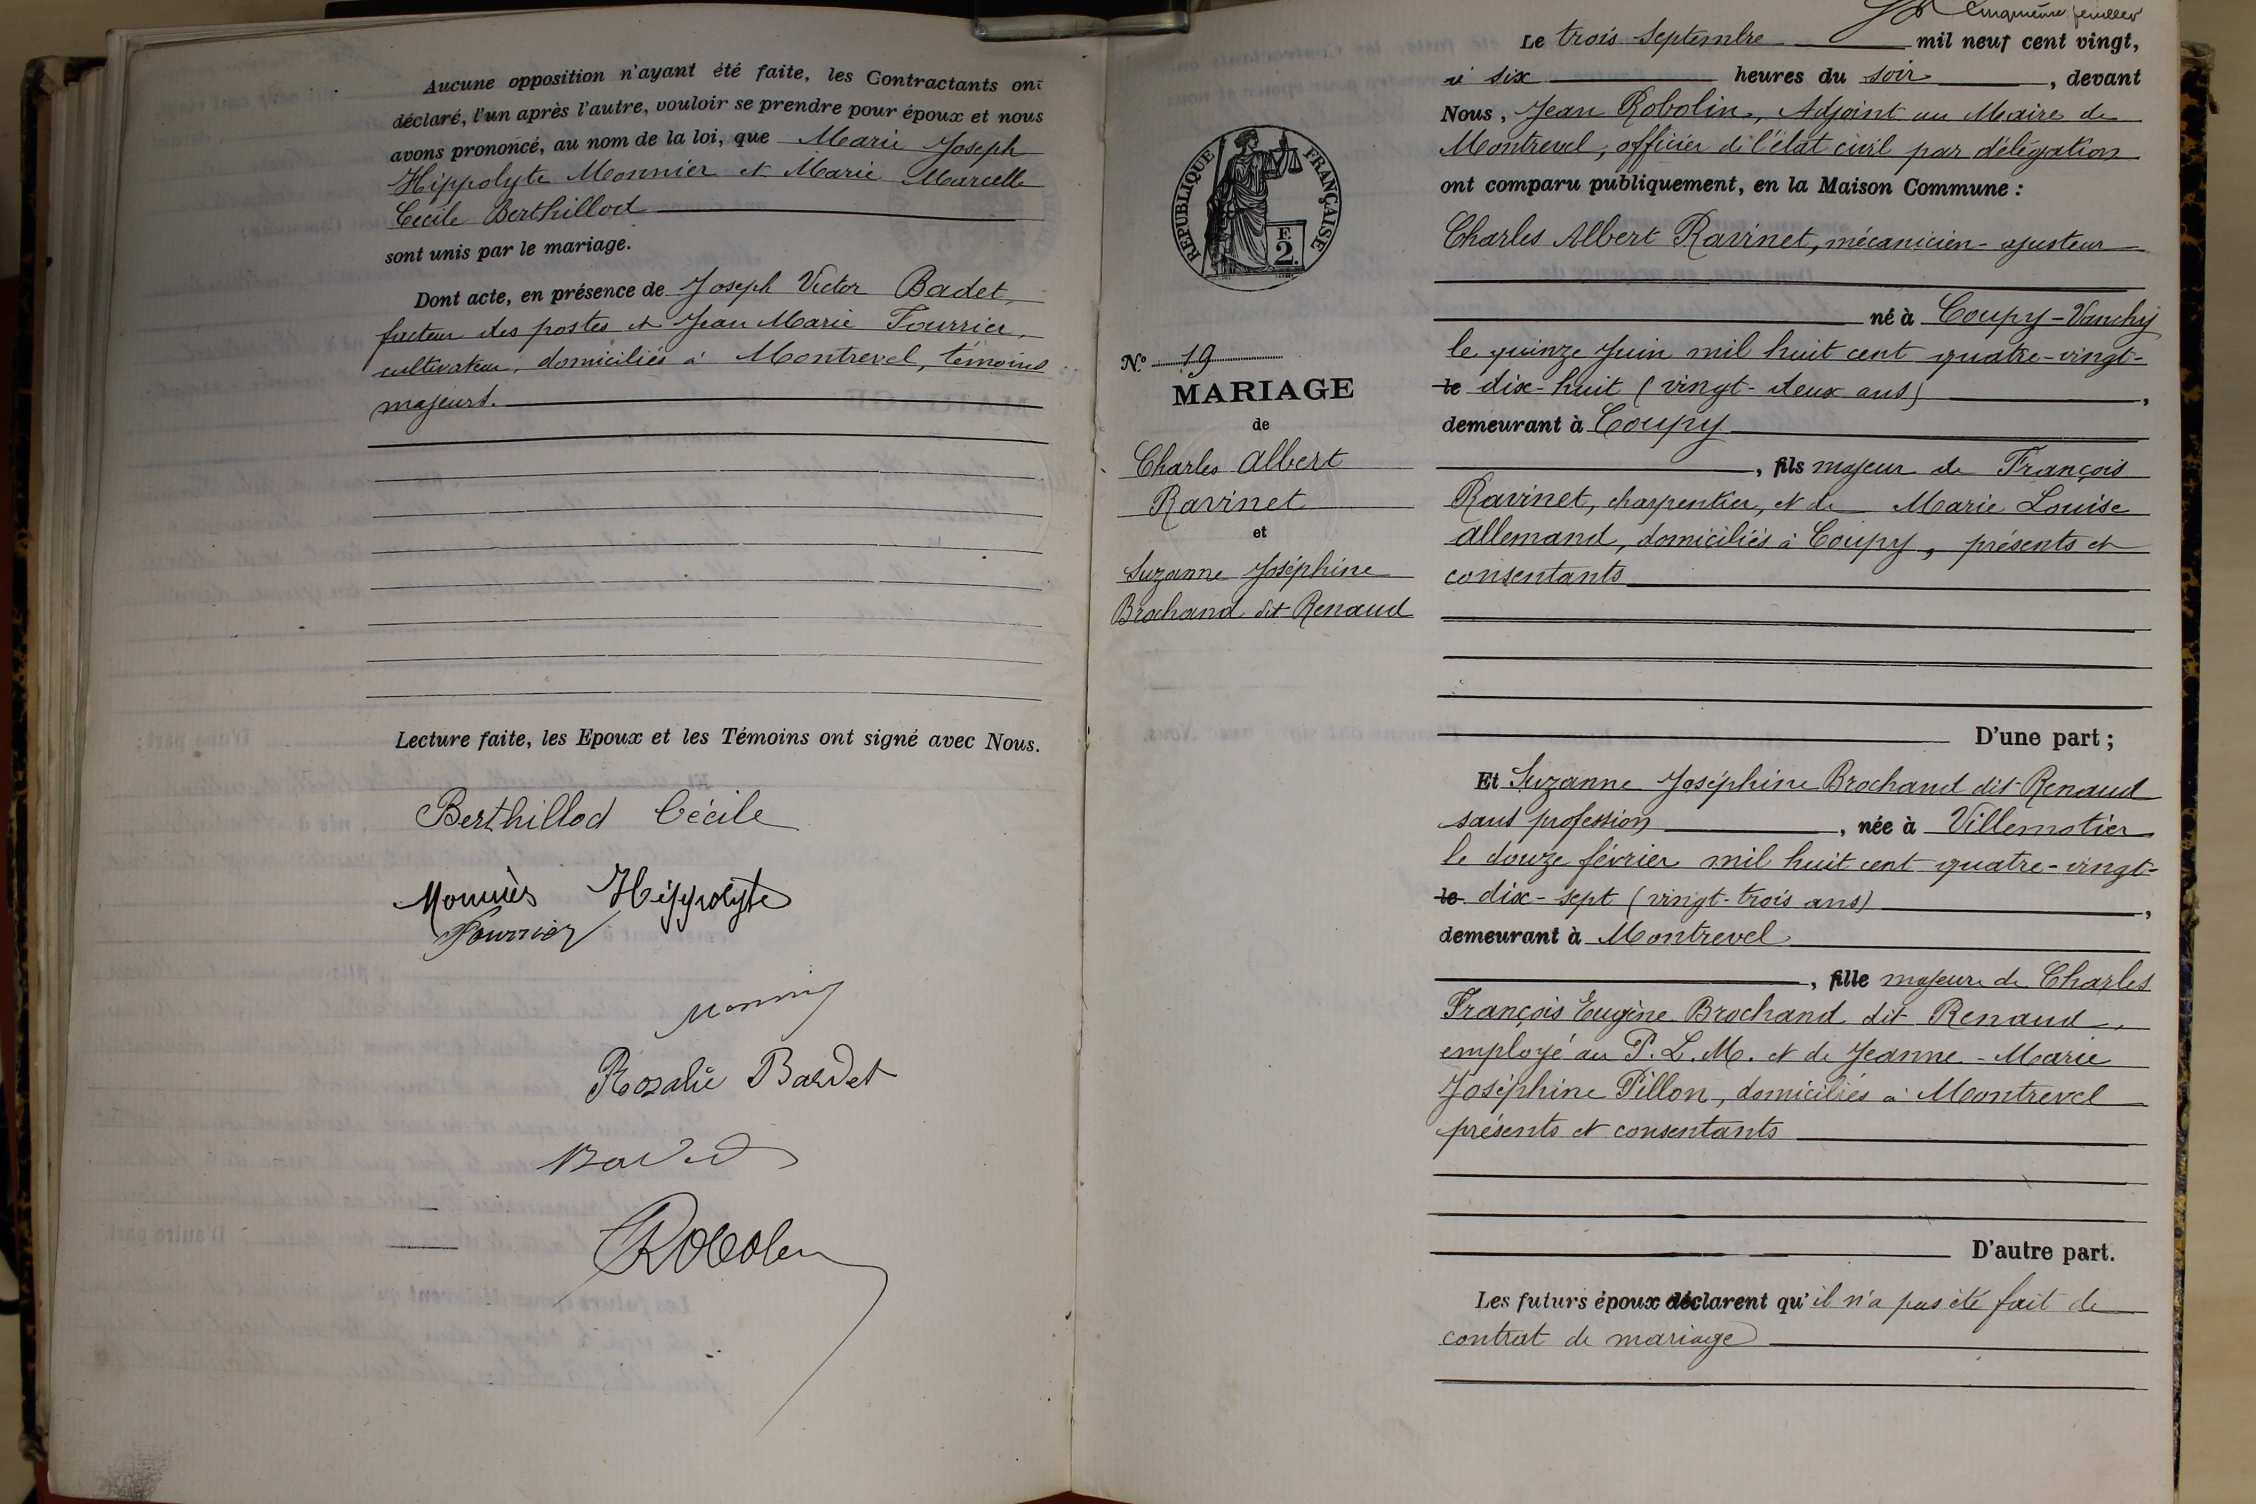 Aucune opposition n'ayant été faite, les Contractants ont
déclaré, l'un après l'autre, vouloir se prendre pour époux et nous
avons prononcé, au nom de la loi, que Marie Joseph
Hippolyte Monnier et Marie Marcelle
Cécile Berthillod
sont unis par le mariage.
Dont acte, en présence de Joseph Victor Badet,
facteur des postes et Jean Marie Fourrier,
cultivateur, domiciliés à Montrevel, témoins
majeurs.
Lecture faite, les Epoux et les Témoins ont signé avec Nous.
Berthillod Cécile
Monnier Hippolyte
Fourrier
Monnier
Rosalie Bardet
Badet
Robolin
cinquième feuillet
RÉPUBLIQUE FRANÇAISE
F.
2.
N° 19
MARIAGE
de
Charles Albert
Ravinet
et
Suzanne Joséphine
Brochand dit Renaud
Le trois Septembre mil neuf cent vingt,
à six heures du soir, devant
Nous, Jean Robolin, Adjoint au Maire de
Montrevel, officier de l'état civil par délégation
ont comparu publiquement, en la Maison Commune :
Charles Albert Ravinet, mécanicien-ajusteur
né à Coupy-Vanchy
le quinze Juin mil huit cent quatre-vingt-
le dix-huit (vingt-deux ans),
demeurant à Coupy
, fils majeur de François
Ravinet, charpentier, et de Marie Louise
Allemand, domiciliés à Coupy, présents et
consentants
D'une part ;
Et Suzanne Joséphine Brochand dit Renaud
sans profession, née à Villemotier
le douze février mil huit cent quatre-vingt-
le dix-sept (vingt-trois ans),
demeurant à Montrevel
, fille majeure de Charles
François Eugène Brochand dit Renaud,
employé au P. L. M. et de Jeanne-Marie
Joséphine Pillon, domiciliés à Montrevel
présents et consentants
D'autre part.
Les futurs époux déclarent qu'il n'a pas été fait de
contrat de mariage